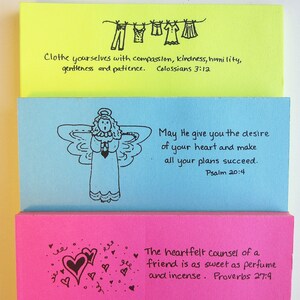 Clothe yourselves with compassion, kindness, humility,
gentleness and patience. Colossians 3:12
May He give you the desire
of your heart and make
all your plans succeed.
Psalm 20:4
The heartfelt counsel of a
friend is as sweet as perfume
and incense. Proverbs 27:9